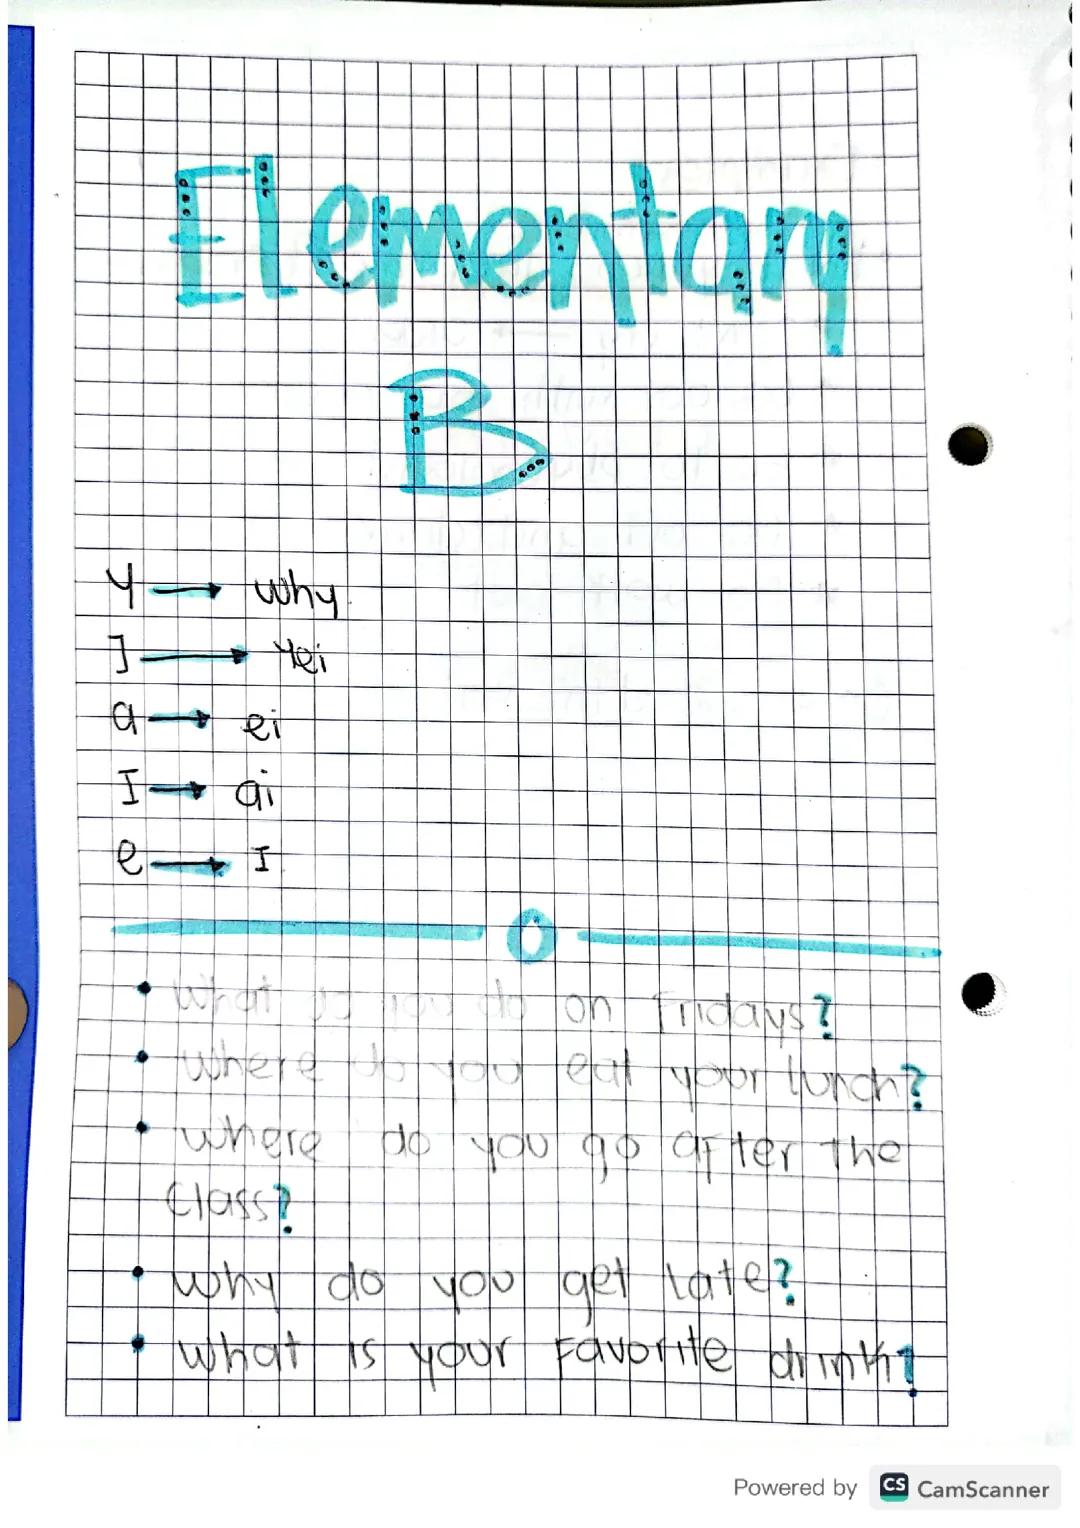 Elementary
B
Y → why
J → Yei
a → ei
I → ai
e → I
• What do you do on Fridays?
• where do you eat your lunch?
• where do you go after the
Class?
• why do you get late?
• what is your favorite drink?
Powered by CS CamScanner